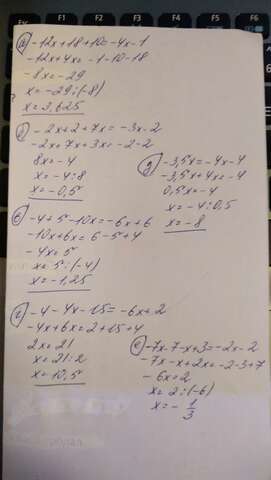 F1 F2 F3 F4 F5 F6
а) -12x+18+10=-4x-1
-12x+4x=-1-10-18
-8x=-29
x=-29:(-8)
x=3,625
б) -2x+2+7x=-3x-2
-2x+7x+3x=-2-2
8x=-4
x=-4:8
x=-0,5
в) -4+5-10x=-6x+6
-10x+6x=6-5+4
-4x=5
x=5:(-4)
x=-1,25
г) -4-4x-15=-6x+2
-4x+6x=2+15+4
2x=21
x=21:2
x=10,5
д) -3,5x=-4x-4
-3,5x+4x=-4
0,5x=-4
x=-4:0,5
x=-8
е) -7x-7-x+3=-2x-2
-7x-x+2x=-2-3+7
-6x=2
x=2:(-6)
x=-1/3